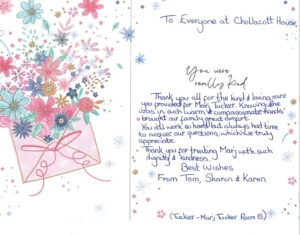 To Everyone at Chollacott House,
You were
really kind
Thank you all for the kind & loving care
you provided for Marj Tucker. Knowing she
was in such warm & compassionate hands
brought our family great comfort.
You all work so hard but always had time
to answer our questions, which we truly
appreciate.
Thank you for treating Marj with such
dignity & kindness.
Best Wishes
From Tom, Sharon & Karen
(Tucker - Marj Tucker Room 15)